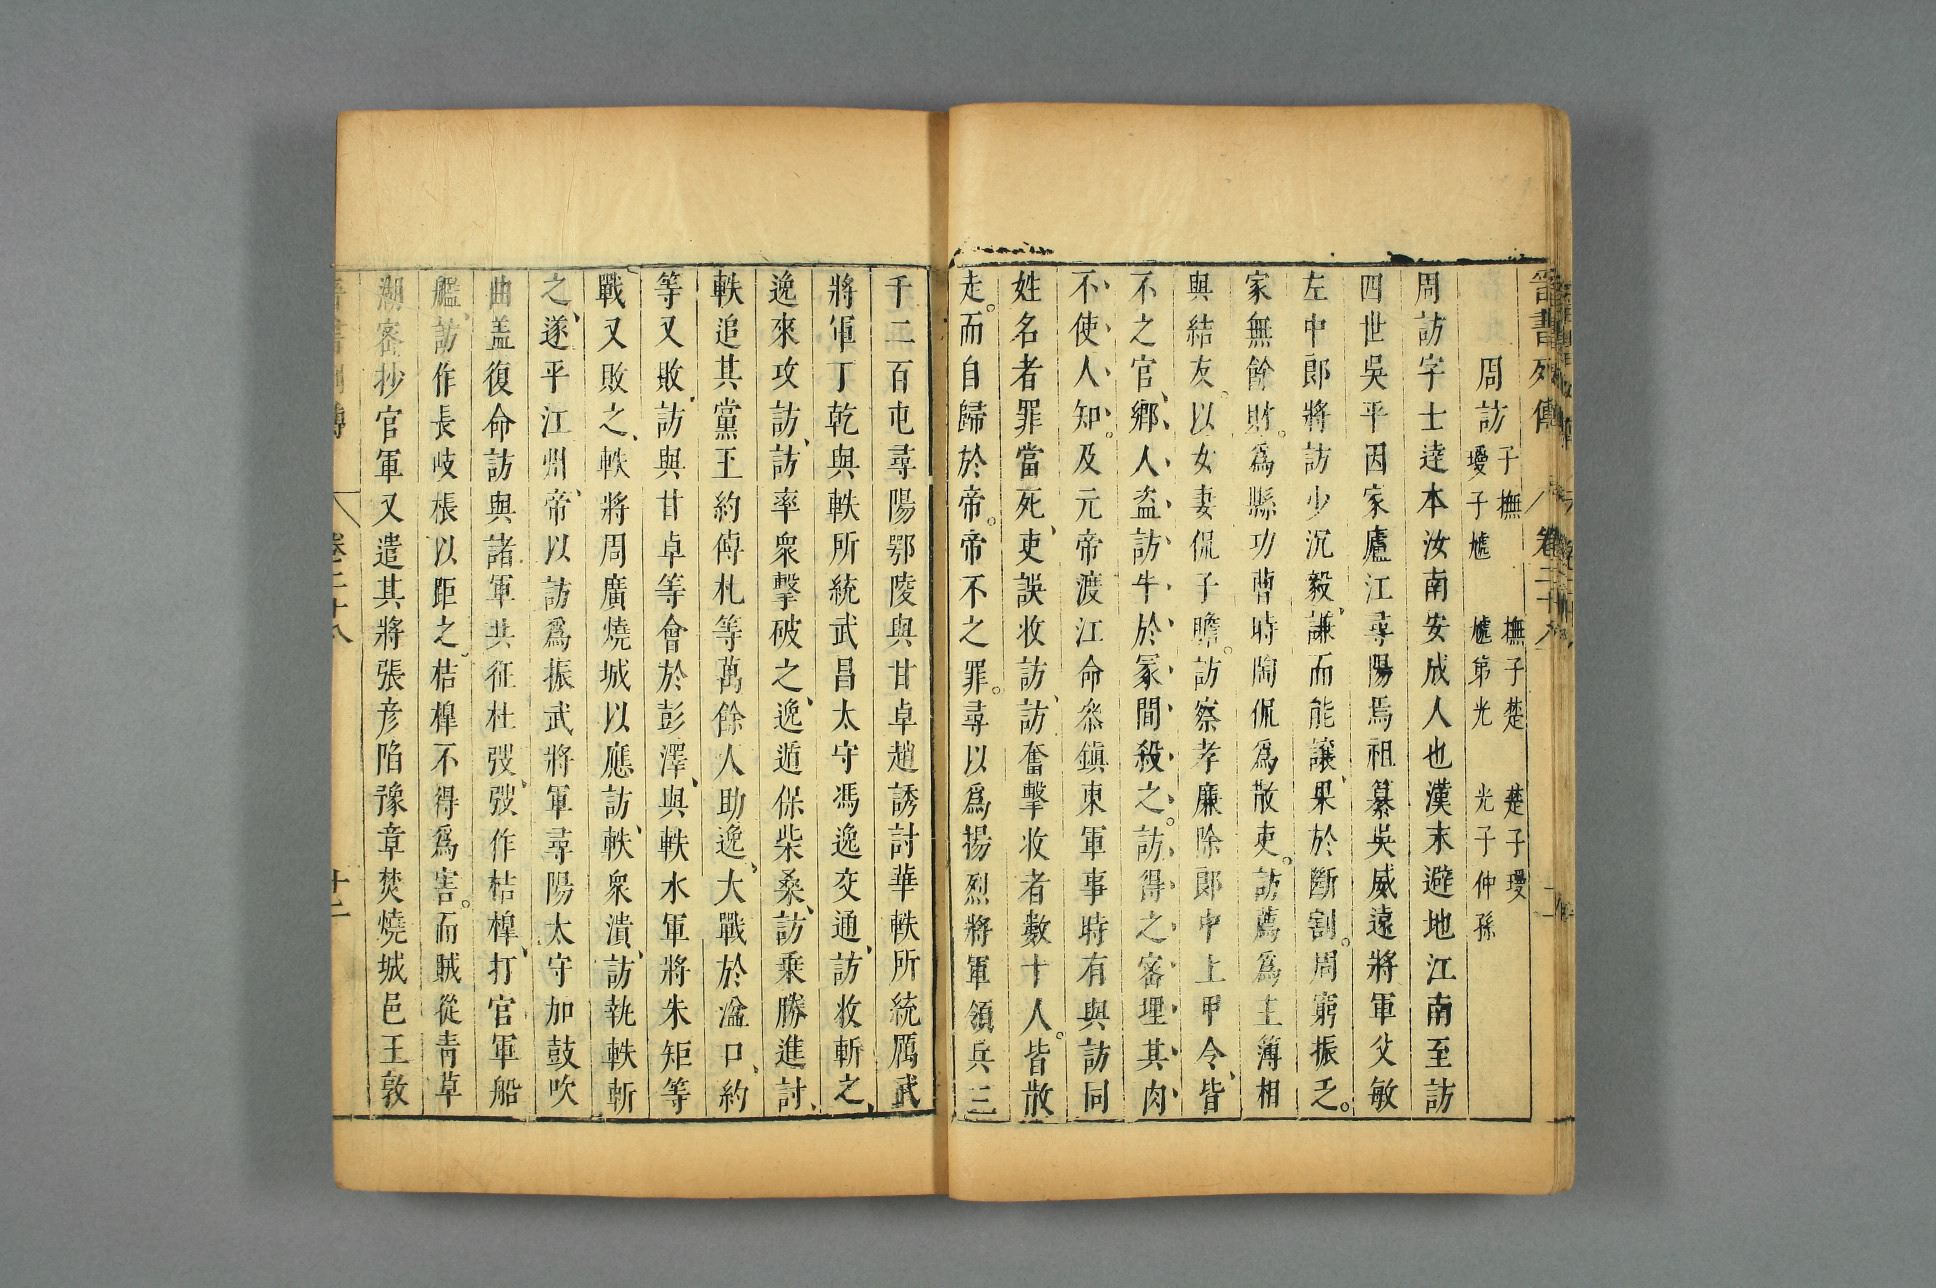 晉書列傳 卷二十八
周訪 子撫 撫子楚 楚子瓊
瓊子虓 虓弟光 光子仲孫
周訪字士達本汝南安成人也漢末避地江南至訪
四世吳平因家廬江尋陽焉祖纂吳威遠將軍父敏
左中郎將訪少沉毅謙而能讓果於斷割。周窮振乏。
家無餘財。爲縣功曹時陶侃爲散吏。訪薦爲主簿相
與結友。以女妻侃子瞻。訪察孝廉除郎中上甲令、皆
不之官、鄉人盜訪牛於冢間殺之。訪得之審埋其肉
不使人知。及元帝渡江命叅鎮東軍事時有與訪同
姓名者罪當死、吏誤收訪、訪奮擊收者數十人。皆散
走。而自歸於帝。帝不之罪。尋以爲揚烈將軍領兵三
千二百屯尋陽鄂陵與甘卓趙誘討華軼所統厲武
將軍丁乾與軼所統武昌太守馮逸交通、訪收斬之、
逸來攻訪、訪率衆擊破之、逸遁保柴桑、訪乗勝進討、
軼追其黨王約傅札等萬餘人助逸、大戰於湓口、約
等又敗、訪與甘卓等會於彭澤、與軼水軍將朱矩等
戰又敗之、軼將周廣燒城以應訪、軼衆潰、訪執軼斬
之、遂平江州、帝以訪爲振武將軍尋陽太守加鼓吹
曲盖復命訪與諸軍共征杜弢、弢作桔槹、打官軍船
艦、訪作長岐棖以距之。桔槹不得爲害。而賊從青草
湖密抄官軍又遣其將張彦陷豫章焚燒城邑王敦
晉書列傳 卷二十八 十二